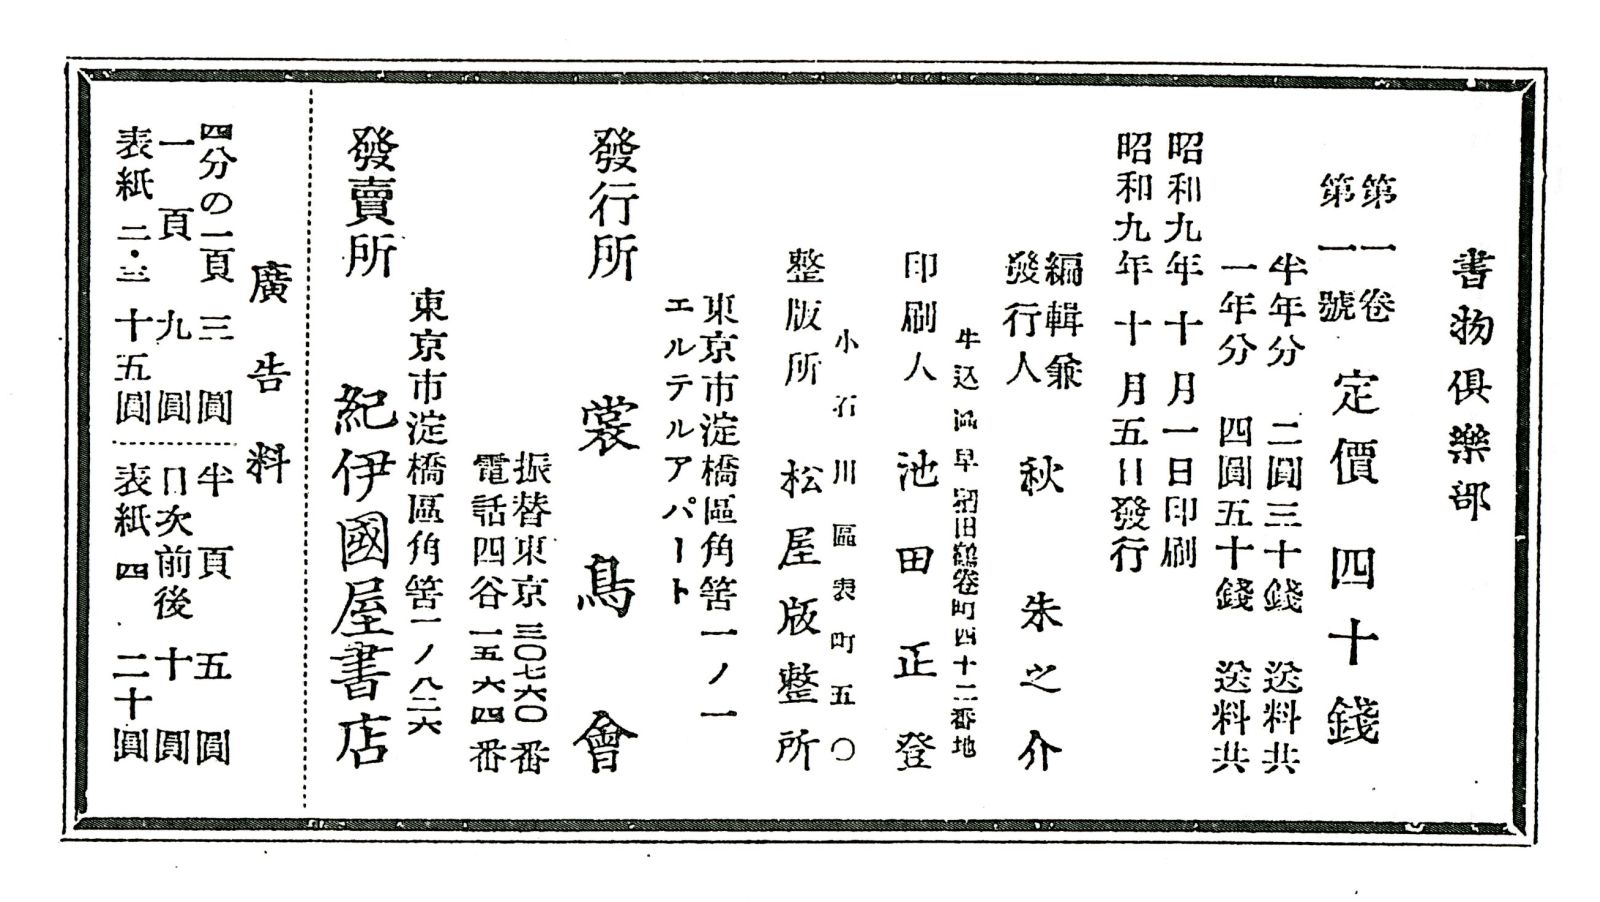 書物倶樂部
第一卷
第一號
定價 四十錢
半年分 二圓三十錢 送料共
一年分 四圓五十錢 送料共
昭和九年十月一日印刷
昭和九年十月五日發行
編輯兼
發行人 秋朱之介
牛込區早稻田鶴卷町四十二番地
印刷人 池田正登
小石川區表町五〇
整版所 松屋版整所
東京市淀橋區角筈一ノ一
エルテルアパート
發行所 裳鳥會
振替東京三〇七六〇番
電話四谷一五六四番
東京市淀橋區角筈一ノ八二六
發賣所 紀伊國屋書店
廣告料
四分の一頁 三圓
一頁 九圓
表紙二・三 十五圓
半頁 五圓
目次前後 十圓
表紙四 二十圓